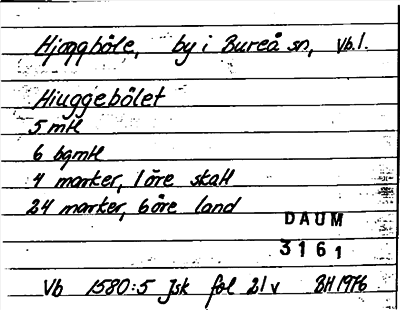 Hjoggböle, by i Bureå sn, Vb. l.
Hiuggebölet
5 mtl
6 bgmtl
4 marker, 1 öre skatt
24 marker, 6 öre land
DAUM
3161
Vb 1580:5 Jsk fol 21v BH 1976